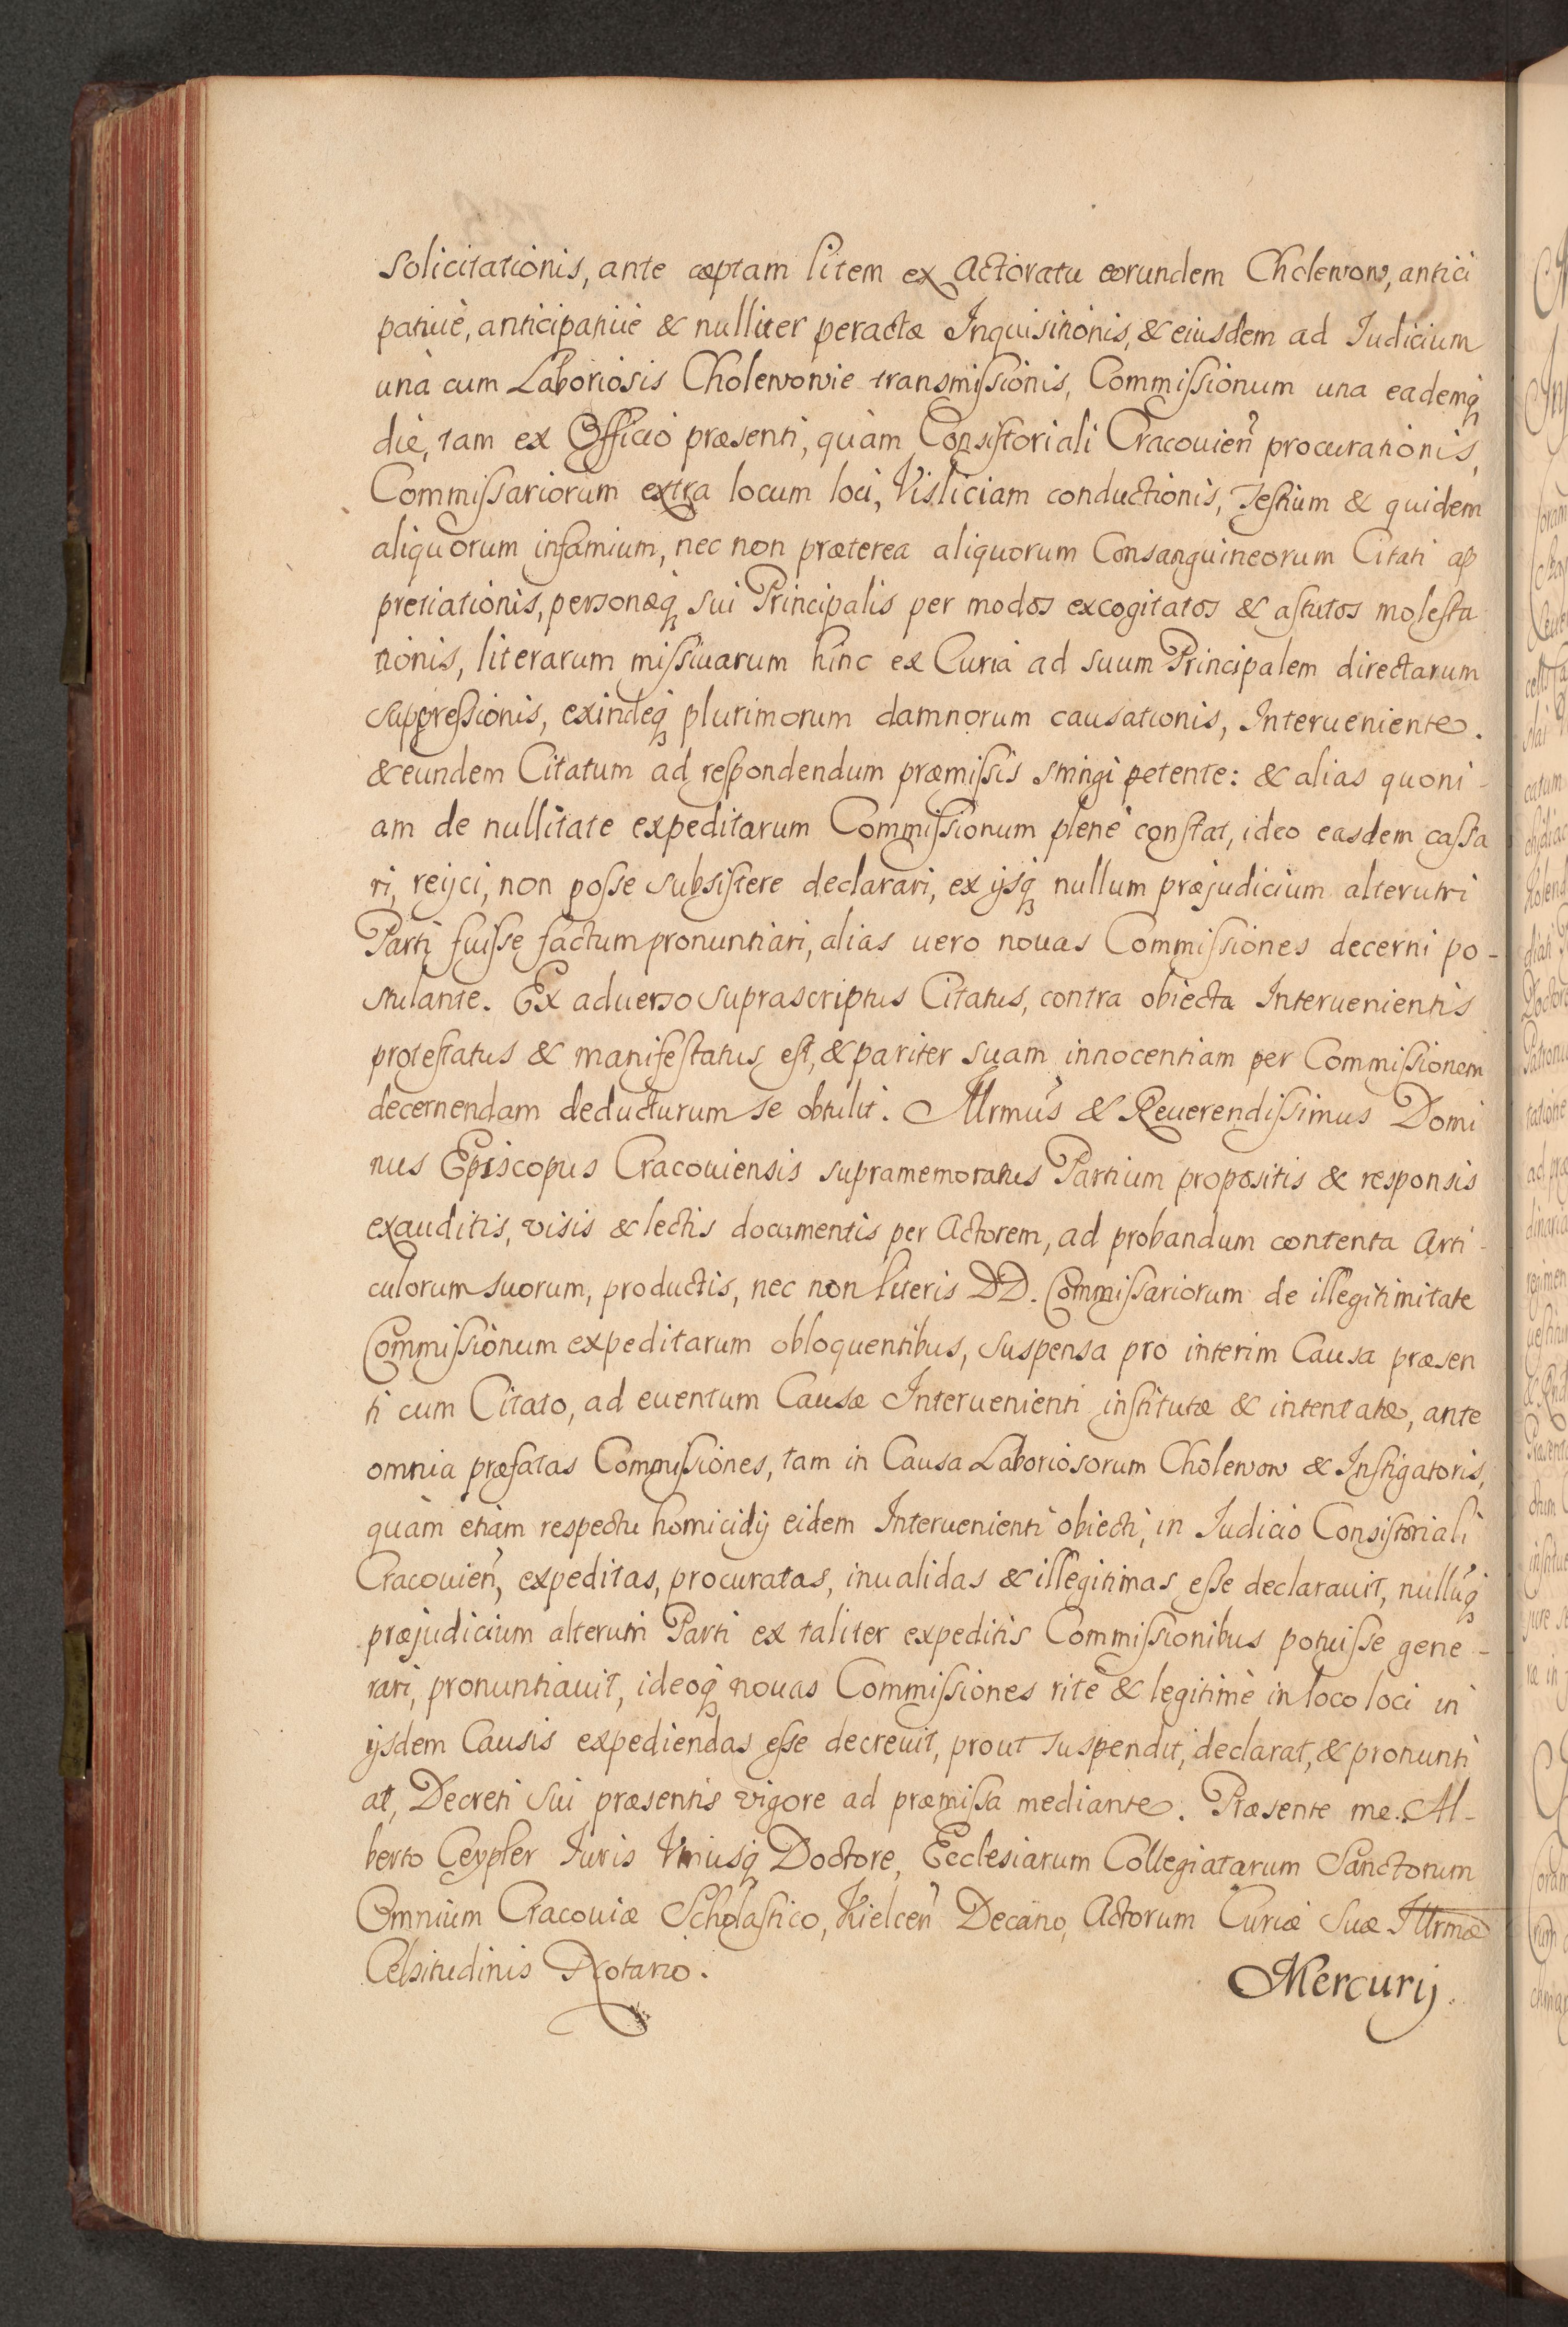 solicitationis, ante cœptam litem ex Actoratu eorundem Cholewow, antici
patiuè, anticipatiuè & nulliter peractæ Inquisitionis, & eiusdem ad Iudicium
unà cum Laboriosis Cholewowie transmiſsionis, Commiſsionum una eademq́
die, tam ex Officio præsenti, quàm Consiſtoriali Cracouień procurationis,
Commiſsariorum extra locum loci, Visliciam conductionis, Teſtium & quidem
aliquorum infamium, nec non præterea aliquorum Consanguineorum Citati ap
pretiationis, personæq́ sui Principalis per modos excogitatos & aſtutos moleſta
tionis, literarum miſsiuarum hinc ex Curia ad suum Principalem directarum
suppreſsionis, exindeq́ plurimorum damnorum causationis, Interueniente.
& eundem Citatum ad reſpondendum præmiſsis stringi petente: & alias quoni-
am de nullitate expeditarum Commiſsionum plenè conſtat, ideo easdem caſsa
ri, reijci, non poſse subsiſtere declarari, ex ijsq́ nullum præjudicium alterutri
Parti fuiſse factum pronuntiari, alias uero nouas Commiſsiones decerni po-
stulante. Ex aduerso suprascriptus Citatus, contra obiecta Interuenientis
proteſtatus & manifeſtatus eſt, & pariter suam innocentiam per Commiſsionem
decernendam deducturum se obtulit. Illrmus & Reuerendiſsimus Domi
nus Episcopus Cracouiensis supramemoratus Partium propositis & responsis
exauditis, visis & lectis documentis per Actorem, ad probandum contenta Arti-
culorum suorum, productis, nec non literis DD. Commiſsariorum de illegitimitate
Commiſsionum expeditarum obloquentibus, suspensa pro interim Causa præsen
ti cum Citato, ad euentum Causæ Interuenienti inſtitutæ & intentatæ, ante
omnia præfatas Commiſsiones, tam in Causa Laboriosorum Cholewow & Inſtigatoris,
quàm etiàm respectu homicidij eidem Interuenienti obiecti, in Iudicio Consiſtoriali
Cracouień, expeditas, procuratas, inualidas & illegitimas eſse declarauit, nullúq́
præjudicium alterutri Parti ex taliter expeditis Commiſsionibus potuiſse gene-
rari, pronuntiauit, ideoq́ nouas Commiſsiones ritè & legitimè in loco loci in
ijsdem Causis expediendas eſse decreuit, prout suspendit, declarat, & pronunti
at, Decreti sui præsentis vigore ad præmiſsa mediante. Præsente me Al-
berto Ceypler Iuris Vtriusq́ Doctore, Ecclesiarum Collegiatarum Sanctorum
Omnium Cracouiæ Scholaſtico, Kielceń Decano, Actorum Curiæ suæ Illrmæ
Celsitudinis Notario.
Mercurij.